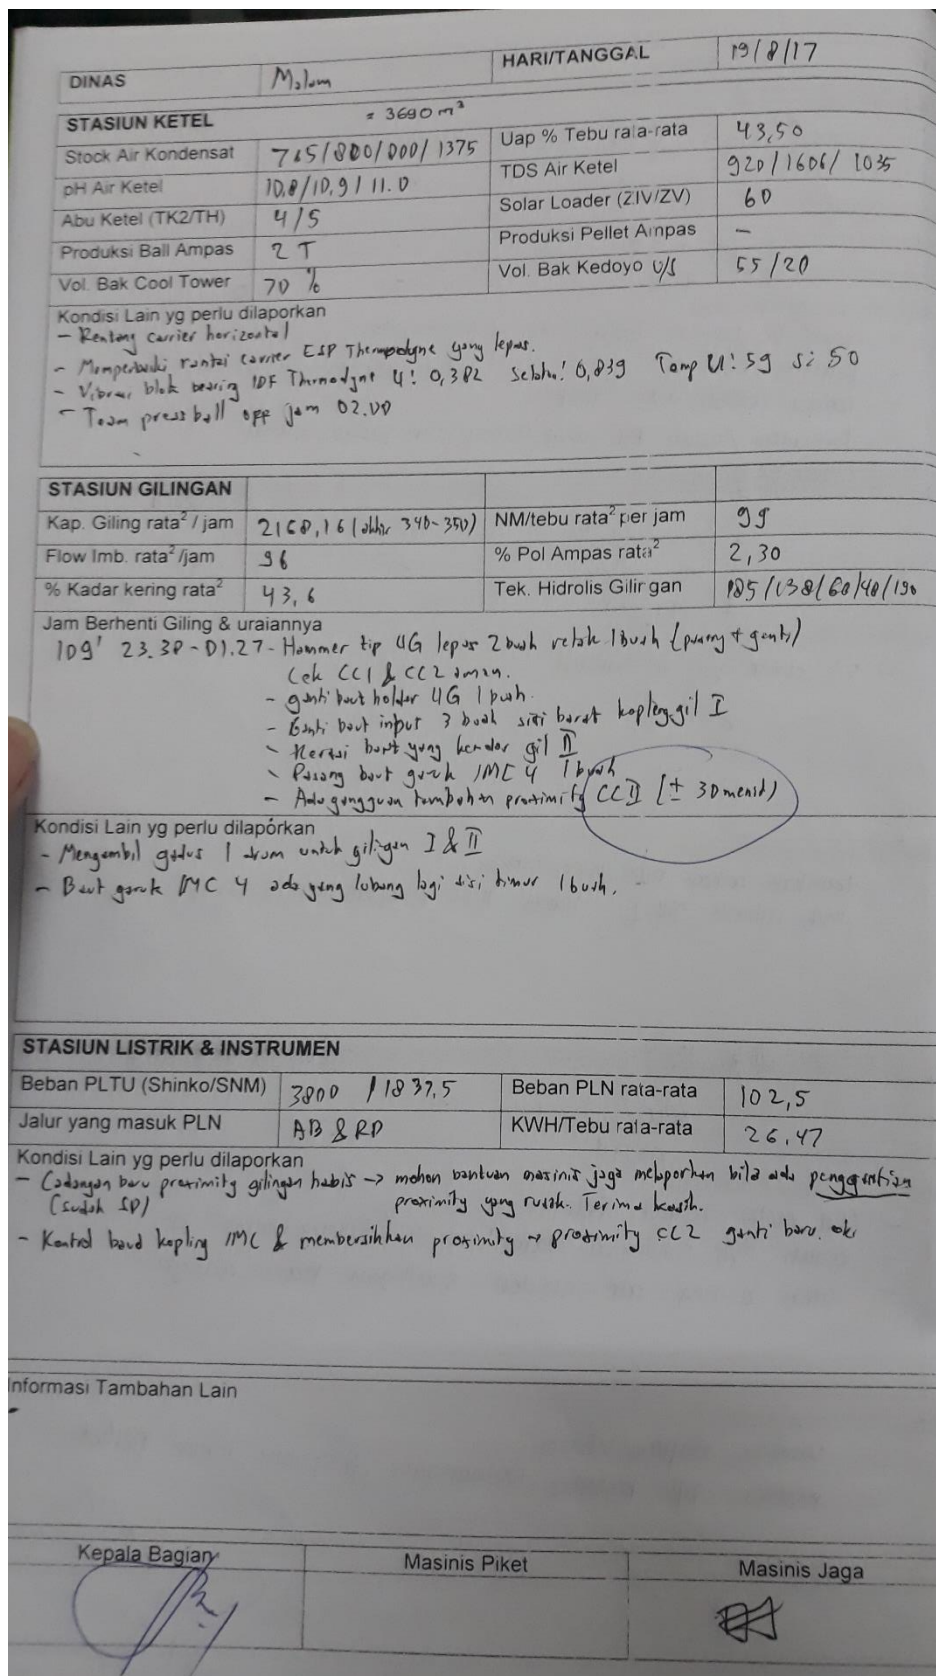 DINAS Malam HARI/TANGGAL 19/8/17
STASIUN KETEL = 3690 m³
Stock Air Kondensat 765/800/000/1375 Uap % Tebu rata-rata 43,50
pH Air Ketel 10,8/10,9/11.0 TDS Air Ketel 920/1606/1035
Abu Ketel (TK2/TH) 4/5 Solar Loader (ZIV/ZV) 60
Produksi Ball Ampas 2 T Produksi Pellet Ampas -
Vol. Bak Cool Tower 70 % Vol. Bak Kedoyo U/S 55/20
Kondisi Lain yg perlu dilaporkan
- Rentang carrier horizontal
- Memperbaiki rantai carrier ESP Thermodyne yang lepas.
- Vibrasi blok bearing IDF Thermodyne U: 0,382 Selatan: 0,839 Temp U: 59 S: 50
- Team press ball off jam 02.00
STASIUN GILINGAN
Kap. Giling rata² / jam 2168,16 (akhir 340-350) NM/tebu rata² per jam 99
Flow Imb. rata² /jam 96 % Pol Ampas rata² 2,30
% Kadar kering rata² 43,6 Tek. Hidrolis Gilingan 185/138/60/40/190
Jam Berhenti Giling & uraiannya
109' 23.38-01.27 - Hammer tip UG lepas 2 buah retak 1 buah (pasang + ganti)
Cek CC1 & CC2 aman.
- ganti baut holder UG 1 buah.
- Ganti baut input 3 buah sisi barat kopling gil I
- Kerasi baut yang kendor gil II
- Pasang baut garuk IMC 4 1 buah
- Ada gangguan tambahan proximity CC II (± 30 menit)
Kondisi Lain yg perlu dilaporkan
- Mengambil gadus 1 drum untuk gilingan I & II
- Baut garuk IMC 4 ada yang lubang lagi sisi timur 1 buah.
STASIUN LISTRIK & INSTRUMEN
Beban PLTU (Shinko/SNM) 3800 / 1837,5 Beban PLN rata-rata 102,5
Jalur yang masuk PLN AB & RD KWH/Tebu rata-rata 26,47
Kondisi Lain yg perlu dilaporkan
- Cadangan baru proximity gilingan habis -> mohon bantuan masinis jaga melaporkan bila ada penggantian
(sudah SP) proximity yang rusak. Terima kasih.
- Kontrol baud kopling IMC & membersihkan proximity -> proximity CC2 ganti baru. ok
Informasi Tambahan Lain
-
Kepala Bagian Masinis Piket Masinis Jaga